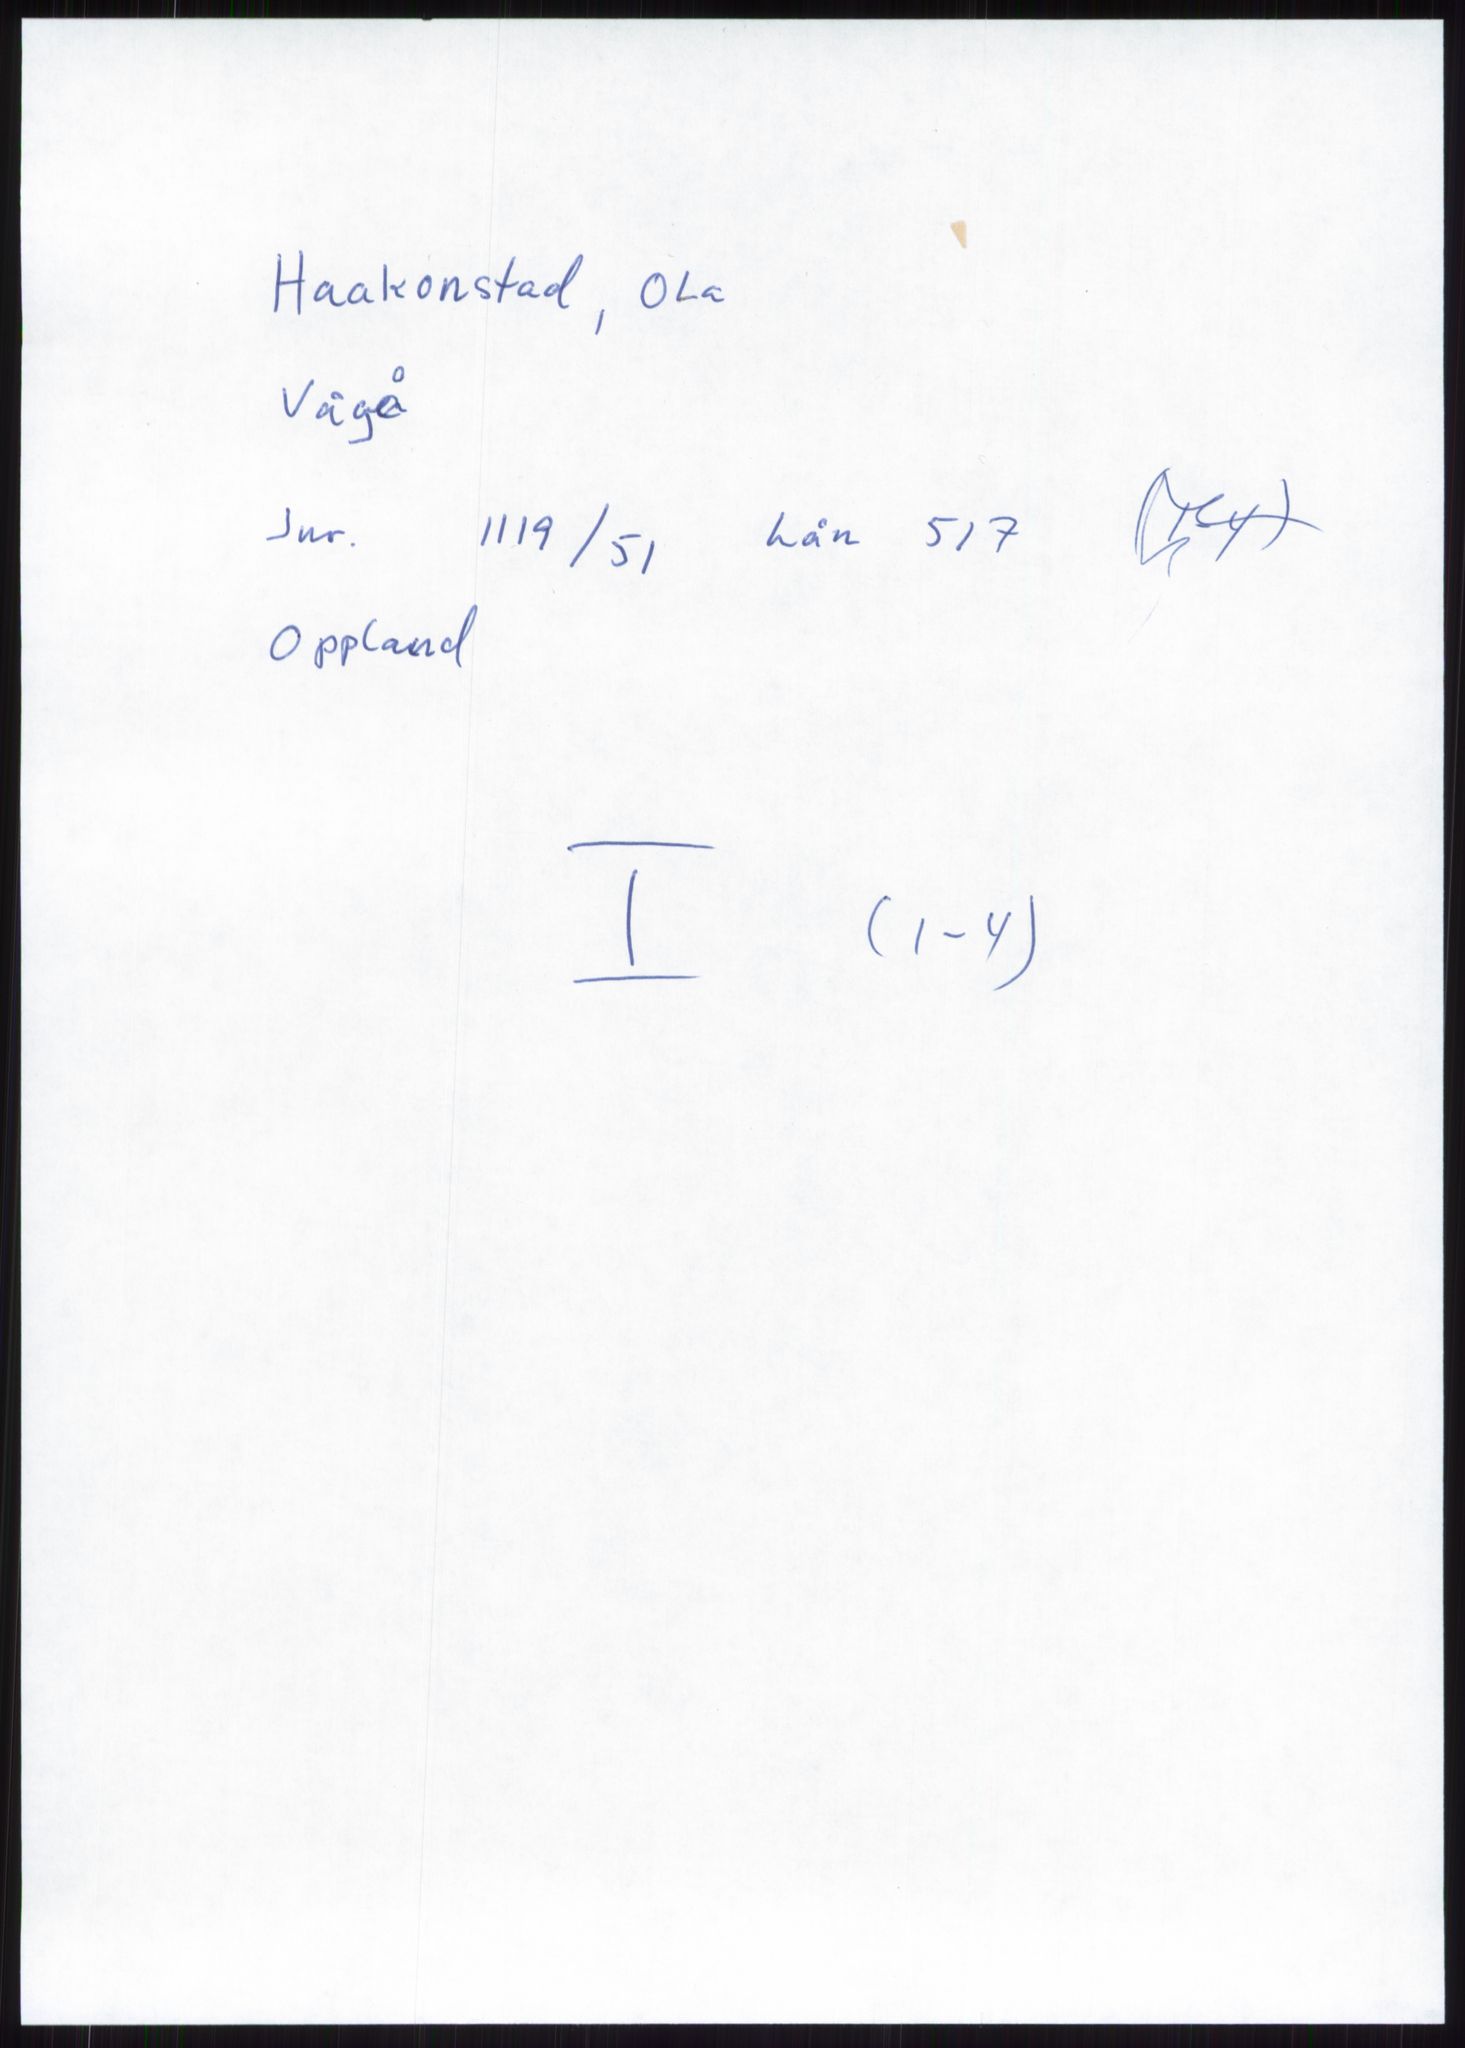 Haakonstad, Ola
Vågå
Jnr. 1119/51 Lån 517
Oppland
I (1-4)